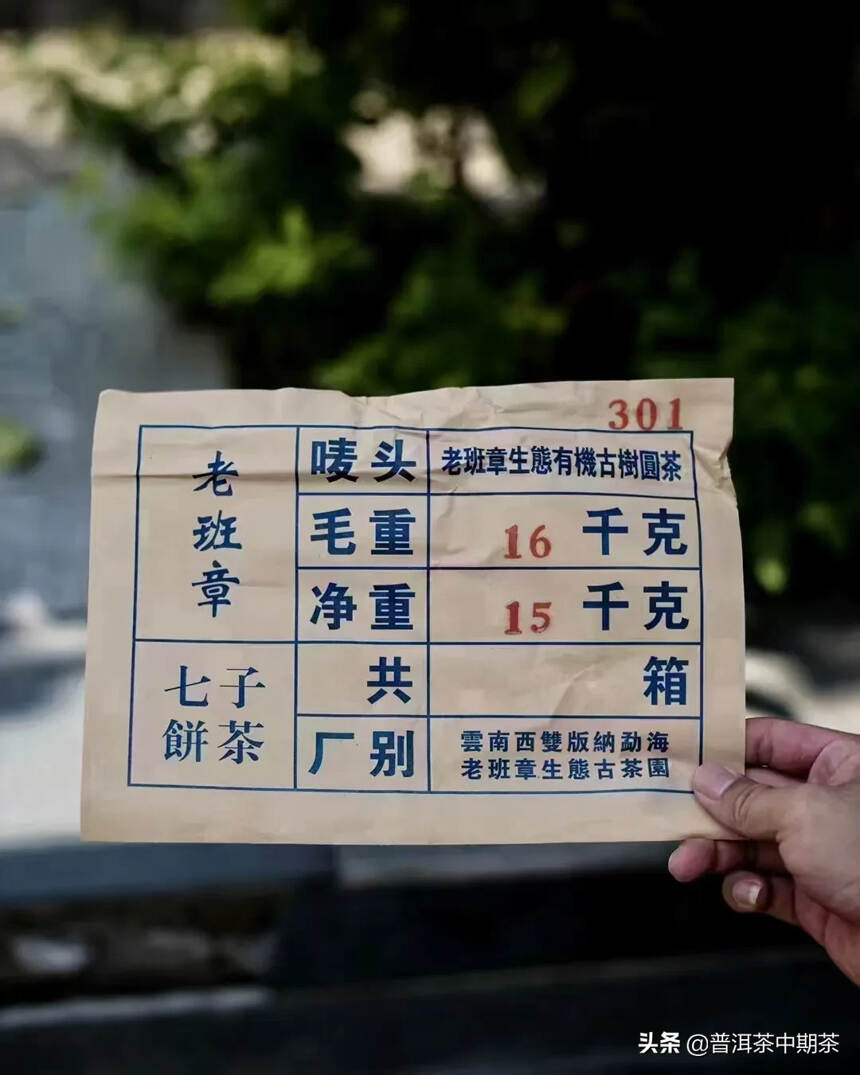 301
老班章
唛头 老班章生態有機古樹圓茶
毛重 16 千克
净重 15 千克
七子
餅茶
共 箱
厂别 雲南西雙版納勐海
老班章生態古茶園
头条 @普洱茶中期茶